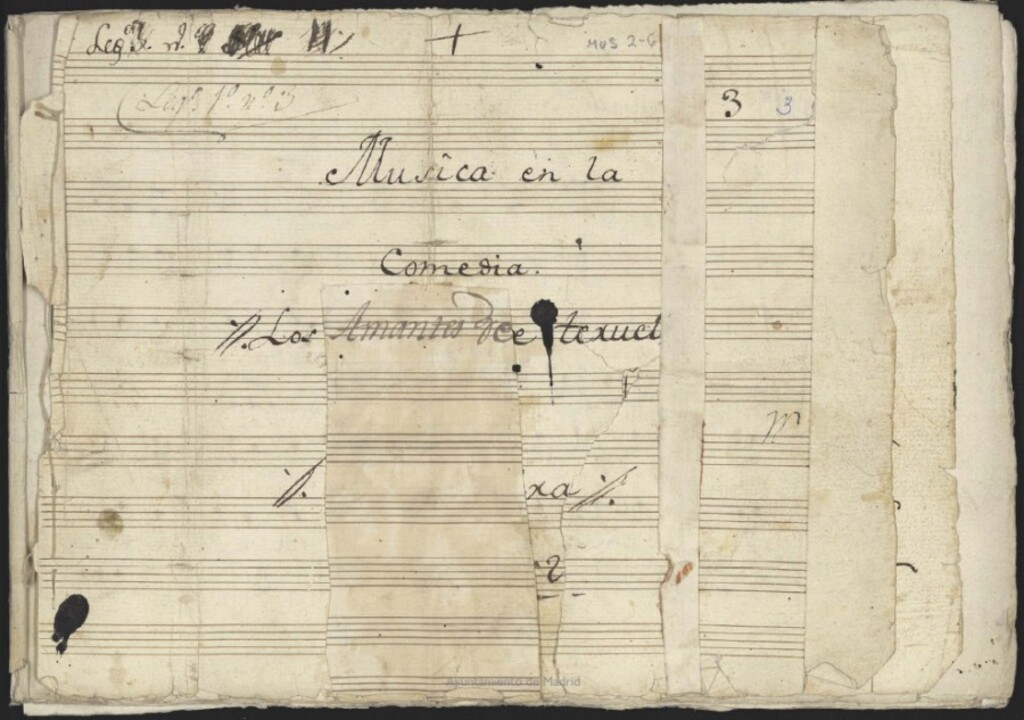 Leg.º
+
MUS 2-6
Leg.º 1.º n.º 3
3 3
Musica en la
Comedia.
Los Amantes de teruel
m
ra
2
Ayuntamiento de Madrid